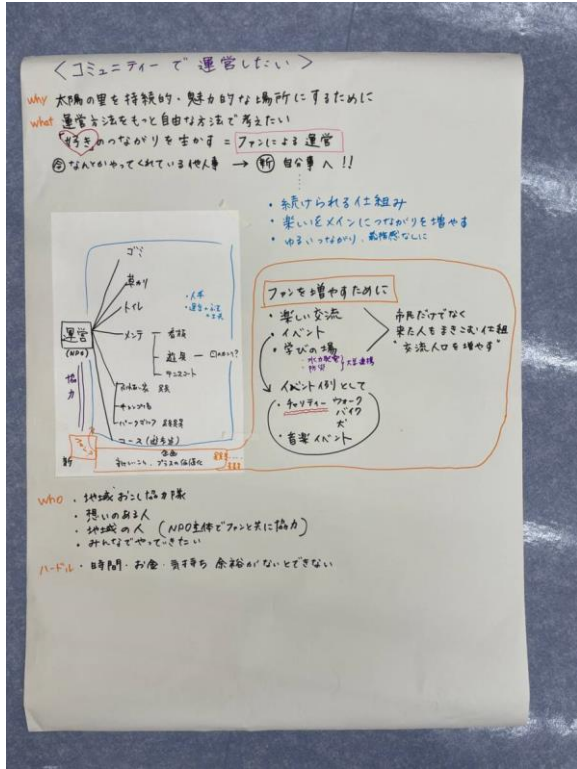 ＜コミュニティーで運営したい＞
why 太陽の里を持続的・魅力的な場所にするために
what 運営方法をもっと自由な方法で考えたい
好きのつながりを生かす = ファンによる運営
今 なんとかやってくれている他人事 → 新 自分事へ!!
・続けられる仕組み
・楽しいをメインにつながりを増やす
・ゆるいつながり、義務感なしに
ゴミ
草かり
トイレ
・人手
運営
(NPO)
メンテ
看板
遊具
テニスコート
協力
ふれあい名
キャンプ場
パークゴルフ
コース
新
企画
新しいこと、プラスの価値化
ファンを増やすために
・楽しい交流
・イベント
・学びの場
・水力発電
・防災
大学連携
市民だけでなく
来た人をまきこむ仕組
"交流人口を増やす"
イベント例として
・チャリティー ウォーク
バイク
犬
・音楽イベント
who ・地域おこし協力隊
・想いのある人
・地域の人 (NPO主体でファンと共に協力)
・みんなでやっていきたい
ハードル ・時間・お金・気持ち 余裕がないとできない